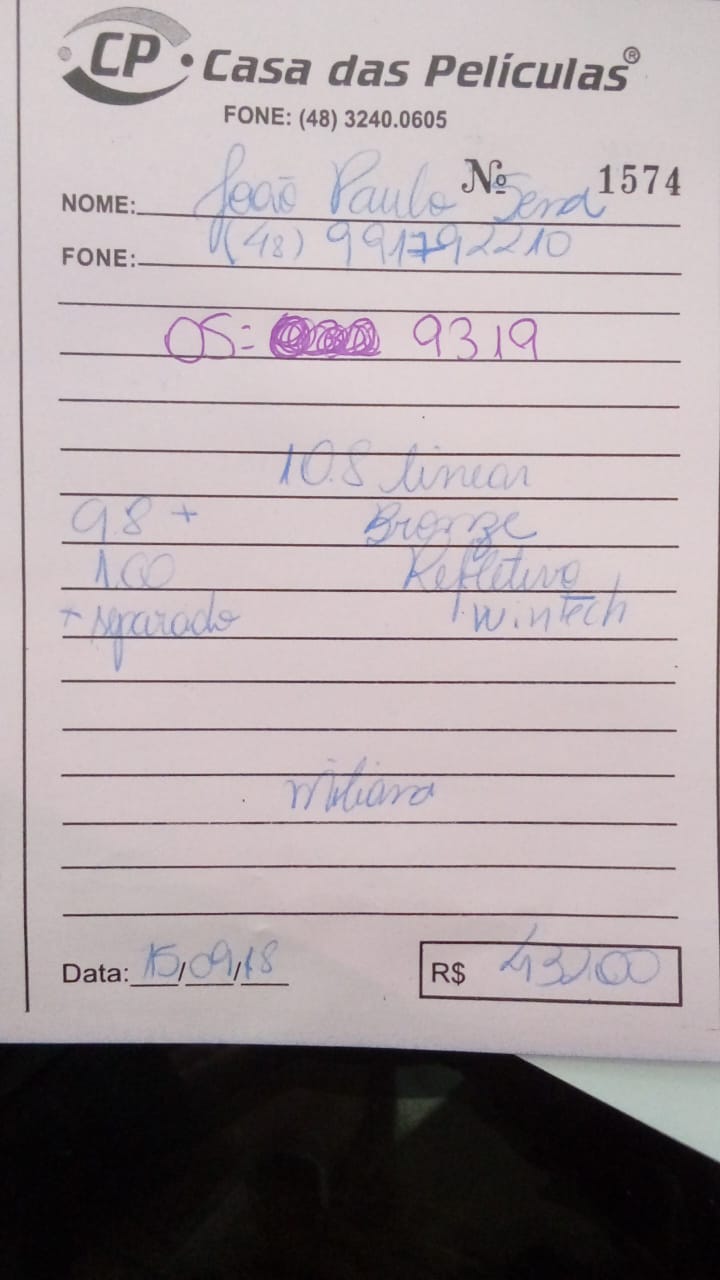 CP • Casa das Películas®
FONE: (48) 3240.0605
Nº 1574
NOME: João Paulo Sena
FONE: (48) 991792210
OS= 9319
10.8 linear
9.8 + Bronze
1.00 Refletivo
+ separado Wintech
Data: 15/09/18
R$ 432,00